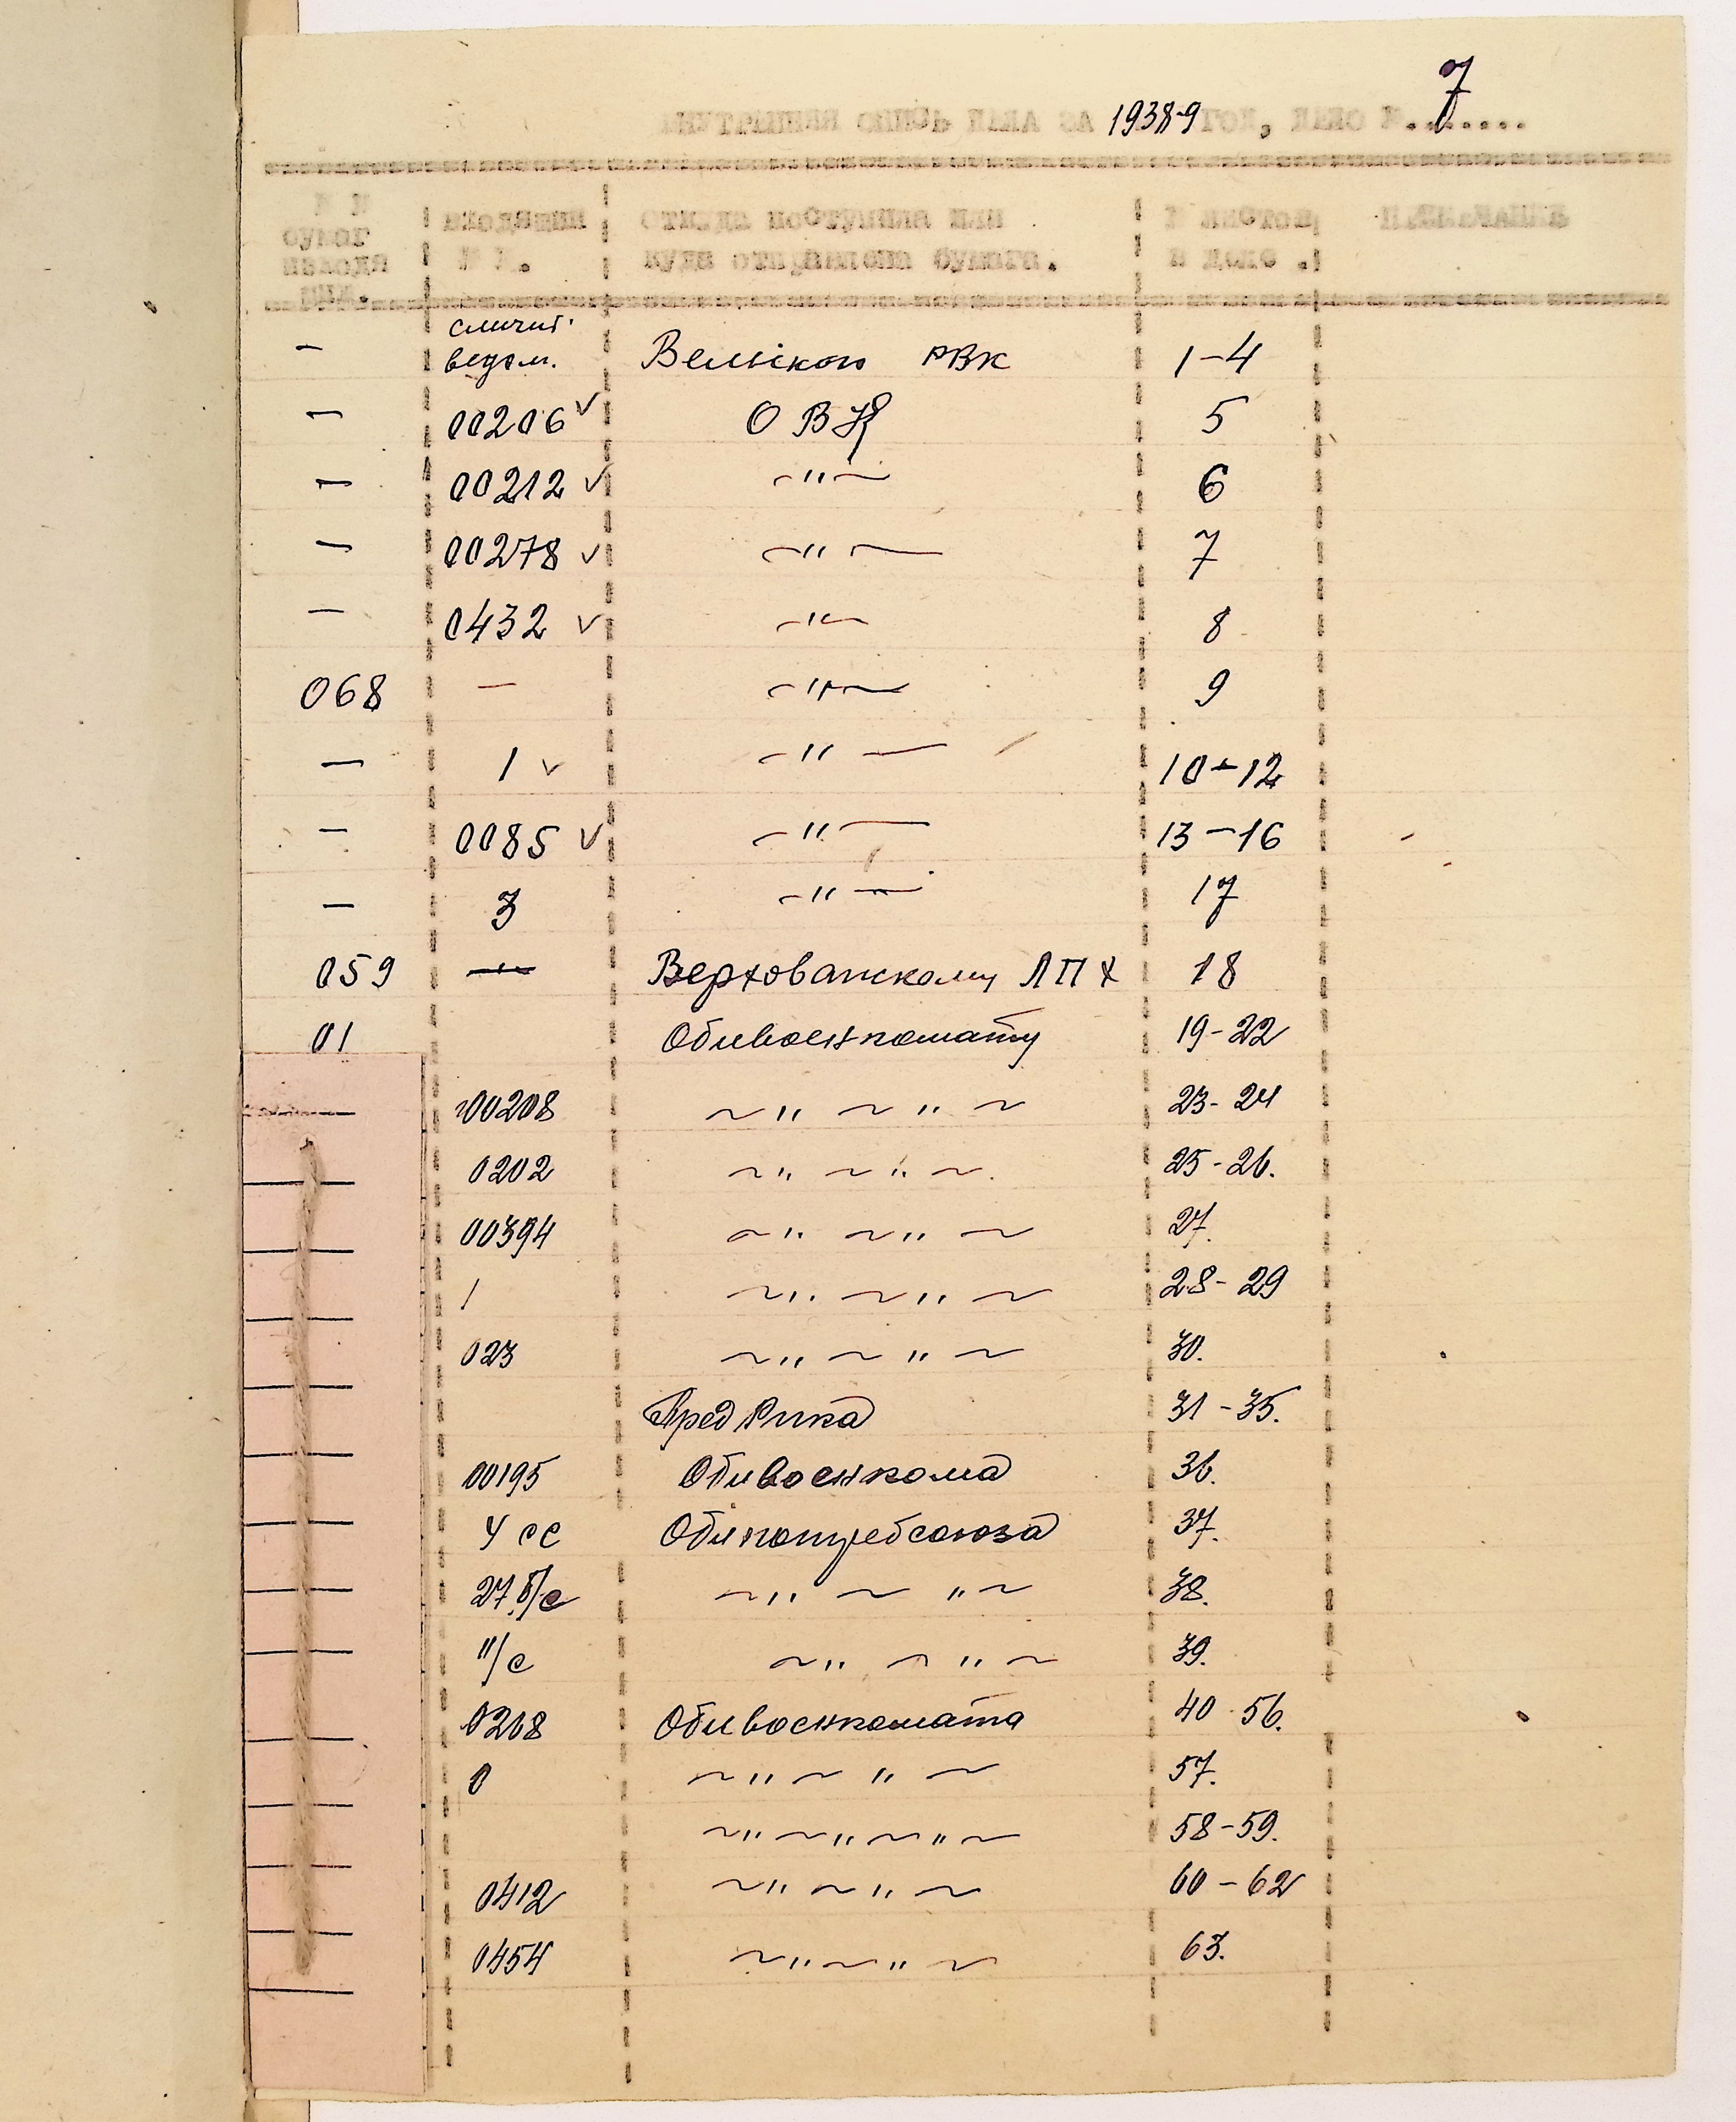 ВНУТРЕННЯЯ ОПИСЬ ДЕЛА ЗА 1938-9 ГОД, ДЕЛО № 7.......
№ № бумаг исходя щих. входящий № №. откуда поступила или куда отправлена бумага. № листов в деле. ПРИМЕЧАНИЕ
— сличит. ведом. Вельского РВК 1-4
— 00206 ✓ ОВК 5
— 00212 ✓ —"— 6
— 00278 ✓ —"— 7
— 0432 ✓ —"— 8
068 — —"— 9
— 1 ✓ —"— 10-12
— 0085 ✓ —"— 13-16
— 3 —"— 17
059 — Верховажскому ЛПХ 18
01 Облвоенкомату 19-22
00208 ~"~"~ 23-24
0202 ~"~"~ 25-26.
00394 ~"~"~ 27.
1 ~"~"~ 28-29
023 ~"~"~ 30.
Пред Рика 31-35.
00195 Облвоенкома 36.
4 сс Облпотребсоюза 37.
27 б/с ~"~"~ 38.
11/с ~"~"~ 39.
0268 Облвоенкомата 40-56.
0 ~"~"~ 57.
~"~"~"~ 58-59.
0412 ~"~"~ 60-62
0454 ~"~"~ 63.